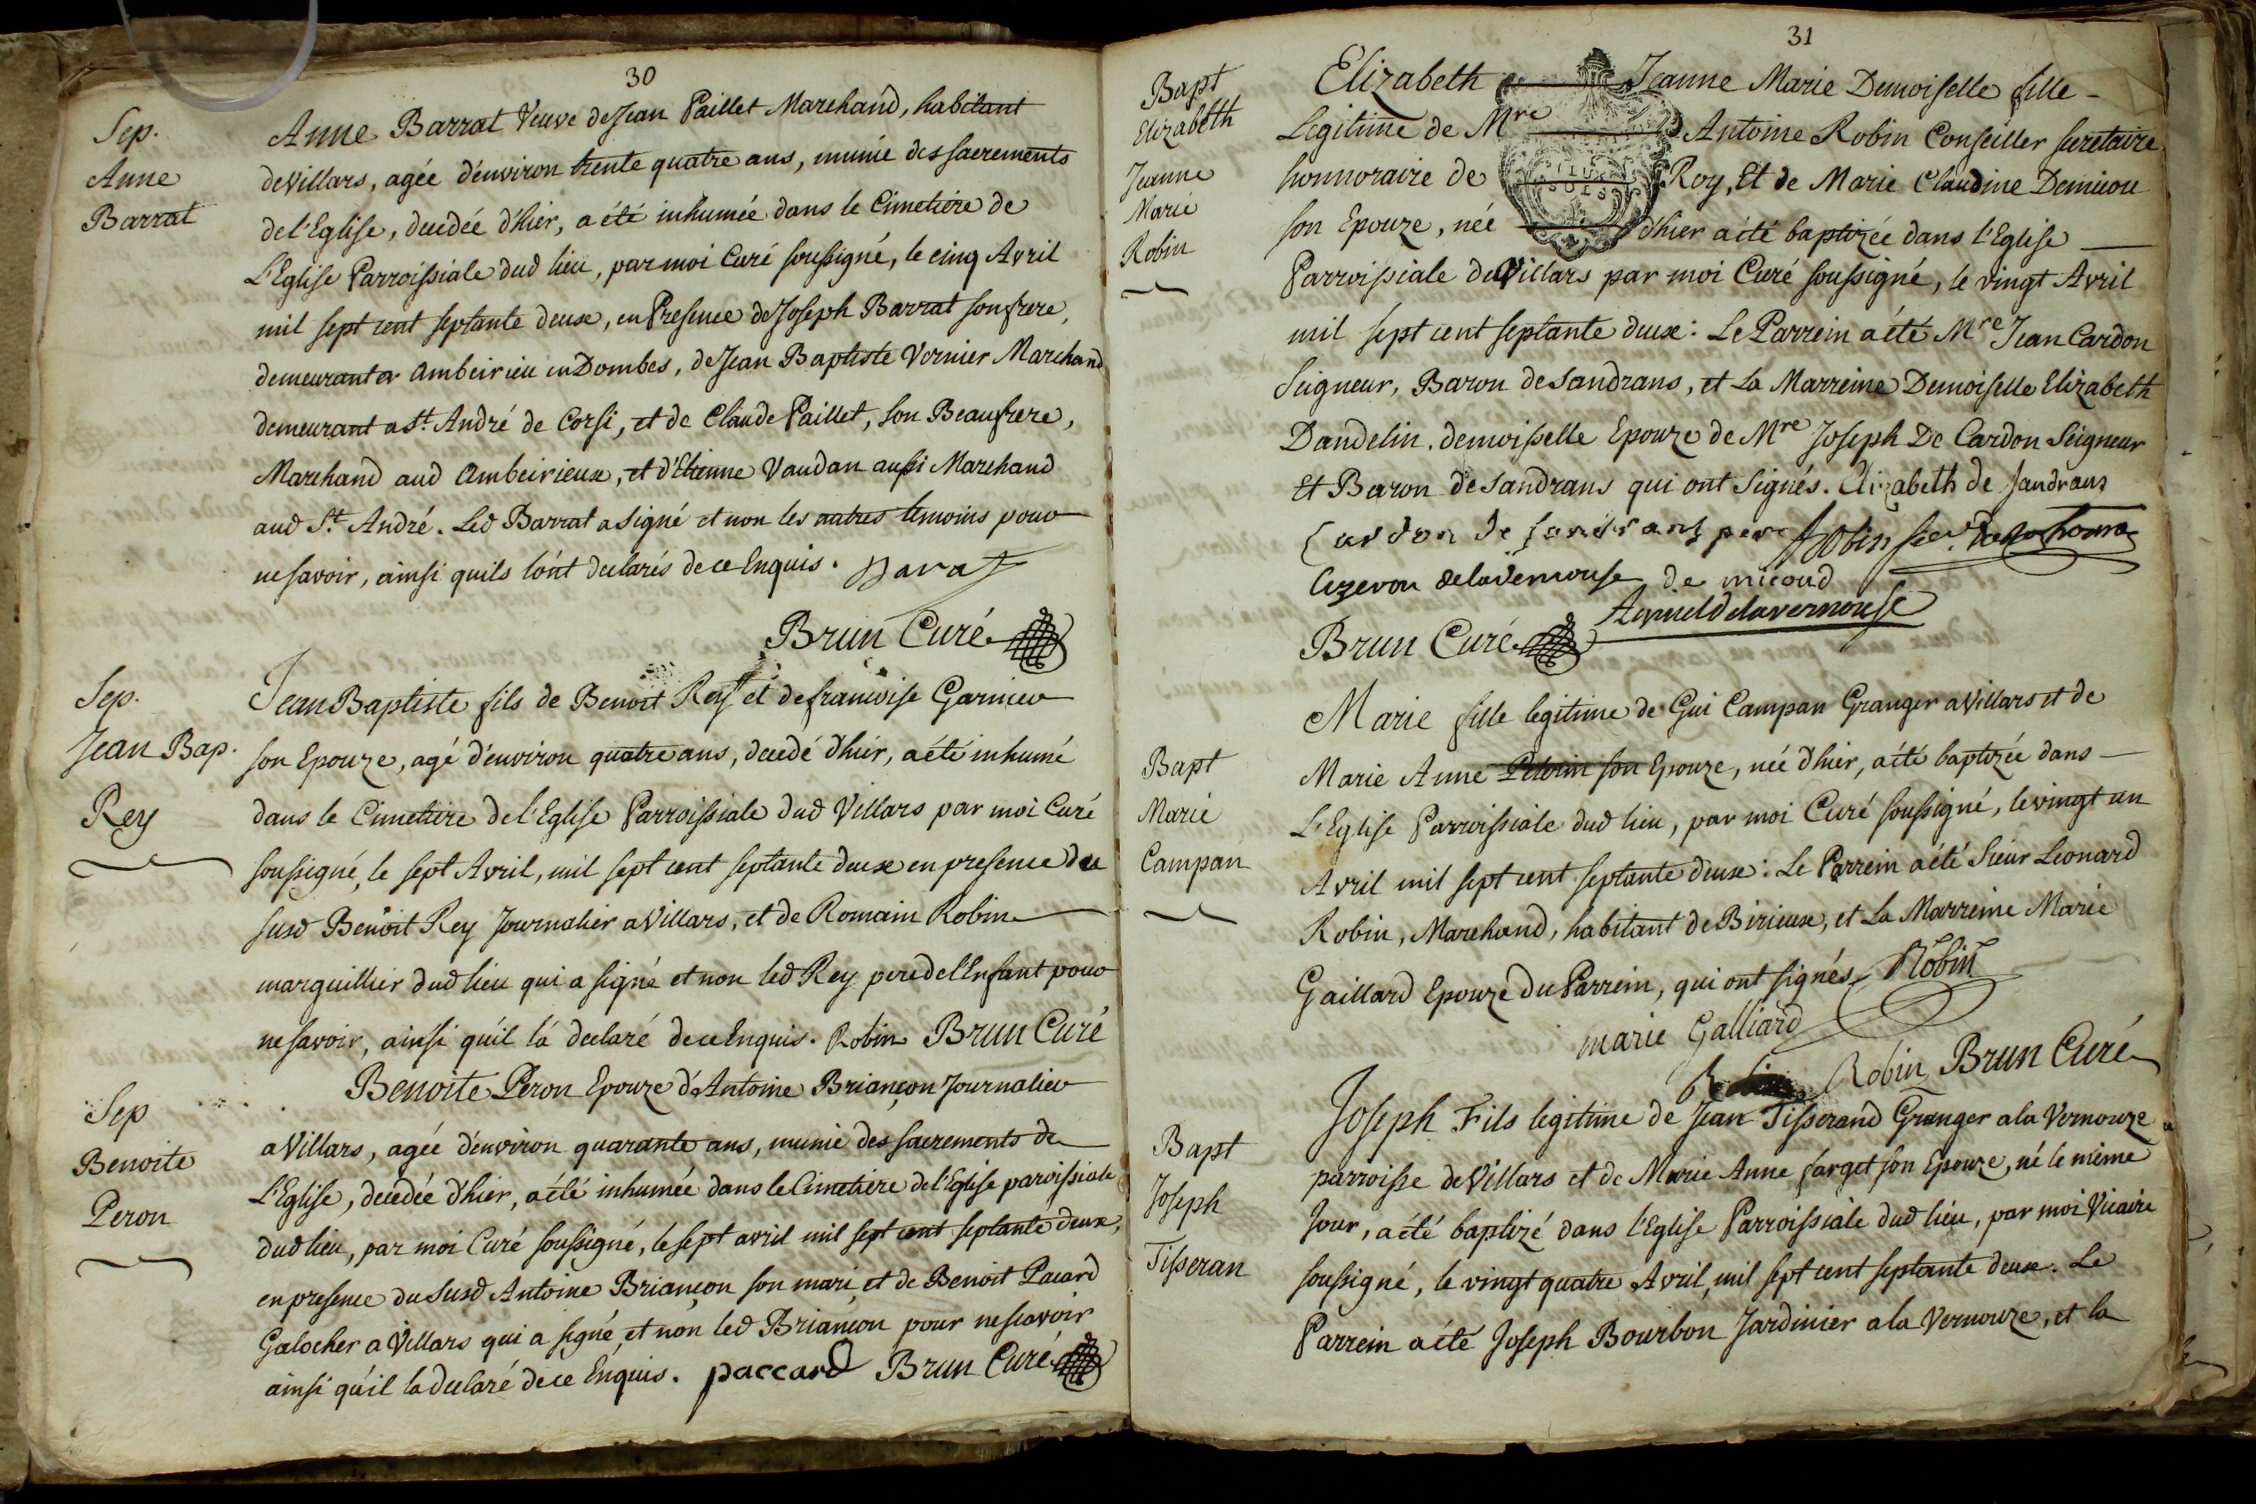 30
Sep.
Anne
Barrat
Anne Barrat Veuve de Jean Paillet Marchand, habitant
de Villars, agée d'environ trente quatre ans, munie des sacrements
de l'Eglise, decedée d'hier, a été inhumée dans le Cimetiere de
L'Eglise Parroissiale dud lieu, par moi Curé soussigné, le cinq Avril
mil sept cent septante deux, en Presence de Joseph Barrat son frere,
demeurant a Ambeirieu en Dombes, de Jean Baptiste Vernier Marchand
demeurant a St. André de Corsi, et de Claude Paillet, son Beaufrere,
Marchand aud Ambeirieux, et d'Etienne Vaudan aussi Marchand
aud St. André. Led Barrat a signé et non les autres temoins pour
ne savoir, ainsi quils l'ont declarés de ce Enquis. Barat
Brun Curé
Sep.
Jean Bap.
Rey
Jean Baptiste fils de Benoit Rey et de francoise Garnier
son Epouze, agé d'environ quatre ans, decedé d'hier, a été inhumé
dans le Cimetiere de l'Eglise Parroissiale dud Villars par moi Curé
soussigné, le sept Avril, mil sept cent septante deux en presence du
susd Benoit Rey Journalier a Villars, et de Romain Robin
marguillier dud lieu qui a signé et non led Rey pere de l'Enfant pour
ne savoir, ainsi qu'il l'a declaré de ce Enquis. Robin Brun Curé
Sep
Benoite
Peron
Benoite Peron Epouze d'Antoine Briançon Journalier
a Villars, agée d'environ quarante ans, munie des sacrements de
L'Eglise, decedée d'hier, a été inhumée dans le Cimetiere de l'Eglise paroissiale
dud lieu, par moi Curé soussigné, le sept avril mil sept cent septante deux,
en presence du susd Antoine Briançon son mari, et de Benoit Pacard
Galocher a Villars qui a signé, et non led Briancon pour ne scavoir
ainsi qu'il la declaré de ce Enquis. paccard Brun Curé
31
Bapt
Elizabeth
Jeanne
Marie
Robin
Elizabeth Jeanne Marie Demoiselle fille
Legitime de Mre Antoine Robin Conseiller secretaire
honnoraire de Roy, Et de Marie Claudine Demicou
son Epouze, née d'hier a été baptizée dans l'Eglise
Parroissiale du Villars par moi Curé soussigné, le vingt Avril
mil sept cent septante deux : Le Parrein a été Mre Jean Cardon
Seigneur, Baron de Sandrans, et La Marreine Demoiselle Elizabeth
Dandelin. demoisselle Epouze de Mre Joseph De Cardon Seigneur
Et Baron de Sandrans qui ont Signés. Elizabeth de Sandrans
Cardon de Sandrans pere Robin
de micoud
Brun Curé
Bapt
Marie
Campan
Marie fille legitime de Gui Campan Granger a Villars et de
Marie Anne son Epouze, née d'hier, a été baptizée dans
L'Eglise Parroissiale dud lieu, par moi Curé soussigné, le vingt un
Avril mil sept cent septante deux : Le Parrein a été Sieur Leonard
Robin, Marchand, habitant de Birieux, et La Marreine Marie
Gaillard Epouze du Parrein, qui ont signés Robin
marie Galliard
Robin Brun Curé
Bapt
Joseph
Tisseran
Joseph Fils legitime de Jean Tisserand Granger a la Vernouze
parroisse de Villars et de Marie Anne farget son Epouze, né le même
Jour, a été baptizé dans l'Eglise Parroissiale dud lieu, par moi Vicaire
soussigné, le vingt quatre Avril, mil sept cent septante deux. Le
Parrein a été Joseph Bourbon Jardinier a la Vernouze, et la